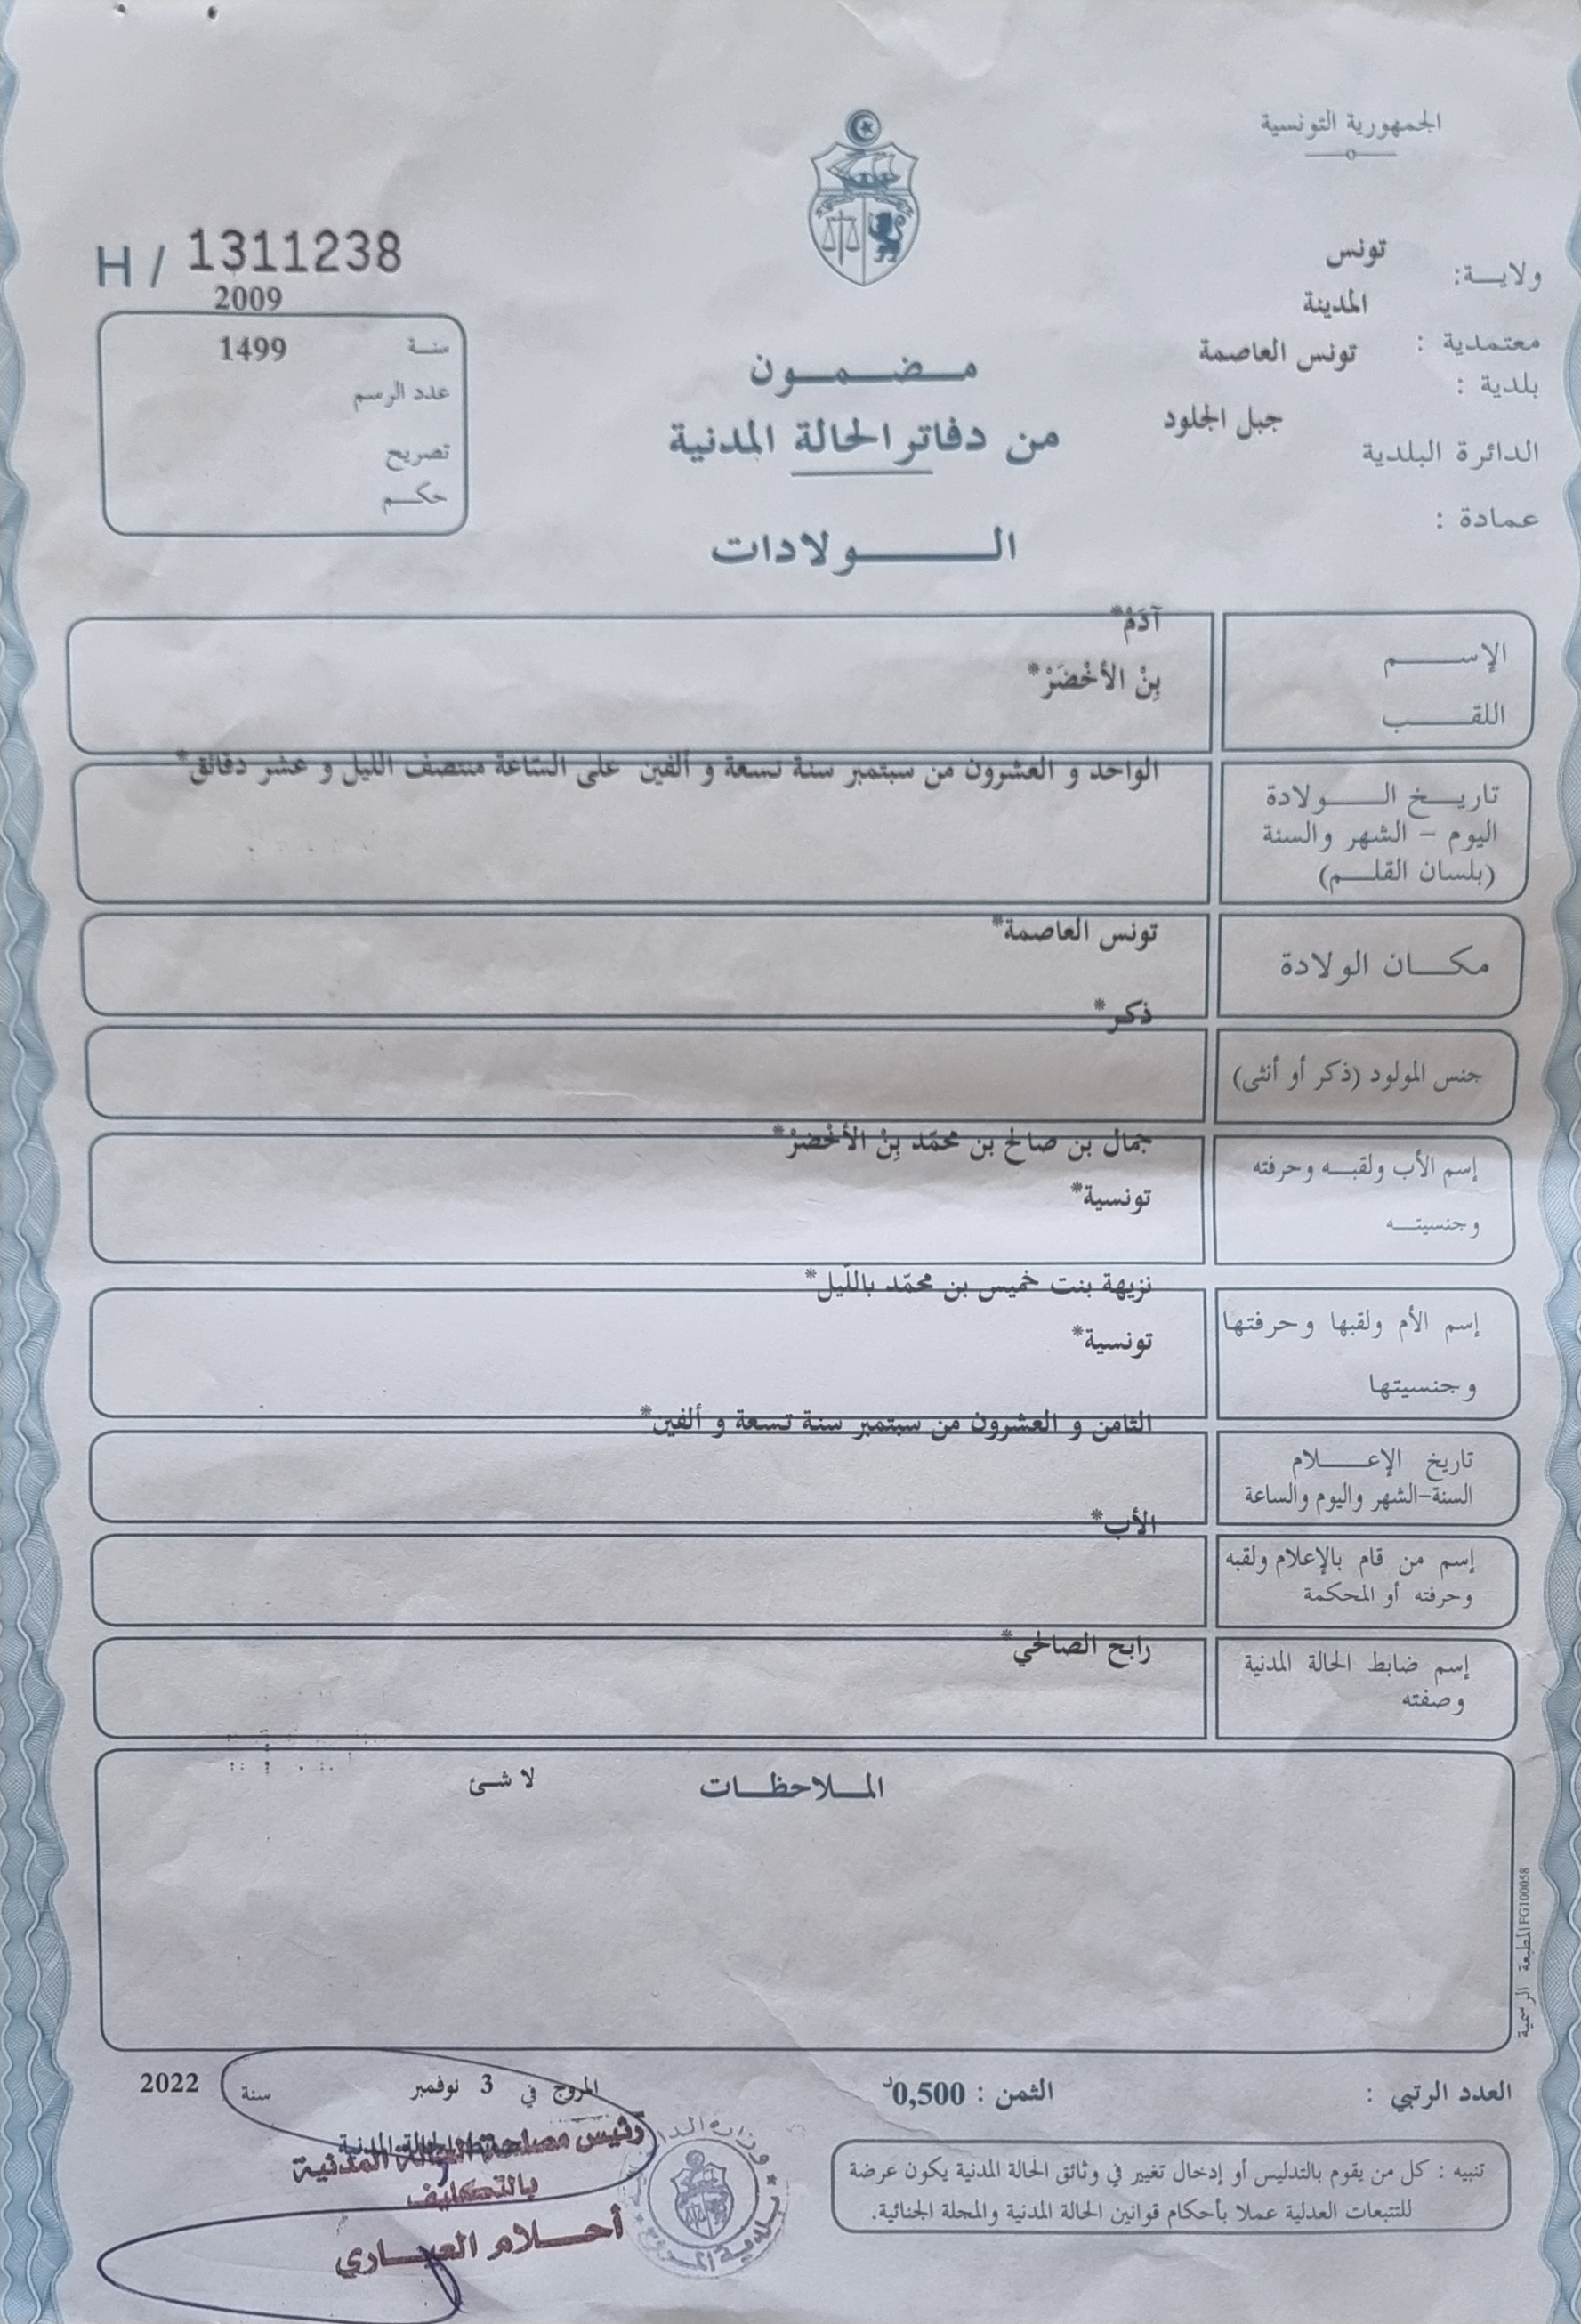 الجمهورية التونسية
ولايــة: تونس
المدينة
معتمدية :
تونس العاصمة
بلدية :
جبل الجلود
الدائرة البلدية
عمادة :
H / 1311238
2009
سنــة 1499
عدد الرسم
تصريح
حكــم
مــضــمــون
من دفاتر الحالة المدنية
الــــولادات
آدَمْ*
الإســـــم
بِنْ الأخْضَرْ*
اللقـــــب
الواحد و العشرون من سبتمبر سنة تسعة و ألفين على السّاعة منتصف الليل و عشر دقائق*
تاريــخ الــــولادة
اليوم – الشهر والسنة
(بلسان القلــم)
تونس العاصمة*
مكــان الولادة
ذكر*
جنس المولود (ذكر أو أنثى)
جمال بن صالح بن محمّد بِنْ الأخْضَرْ*
إسم الأب ولقبــه وحرفته
تونسية*
وجنسيتــه
نزيهة بنت خميس بن محمّد باللّيل*
إسم الأم ولقبها وحرفتها
تونسية*
وجنسيتها
الثامن و العشرون من سبتمبر سنة تسعة و ألفين*
تاريخ الإعــــلام
السنة-الشهر واليوم والساعة
الأب*
إسم من قام بالإعلام ولقبه
وحرفته أو المحكمة
رابح الصالحي*
إسم ضابط الحالة المدنية
وصفته
المــلاحظــات
لا شئ
المطبعة الرسمية FG100058
العدد الرتبي :
الثمن : 0,500د
المروج في 3 نوفمبر سنة 2022
رئيس مصلحة الحالة المدنية
بالتكليف
أحــلام العيــاري
بلدية المروج
تنبيه : كل من يقوم بالتدليس أو إدخال تغيير في وثائق الحالة المدنية يكون عرضة
للتتبعات العدلية عملا بأحكام قوانين الحالة المدنية والمجلة الجنائية.